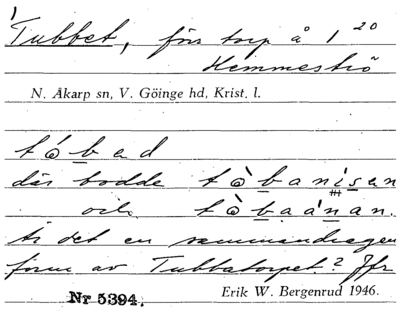 Tubbet, förr torp å 1²⁰
Hemmeströ
N. Åkarp sn, V. Göinge hd, Krist. l.
tóbad
där bodde tòbanisan
och tòbaánan.
Är det en sammandragen
form av Tubbatorpet? Jfr
Nr 5394.
Erik W. Bergenrud 1946.